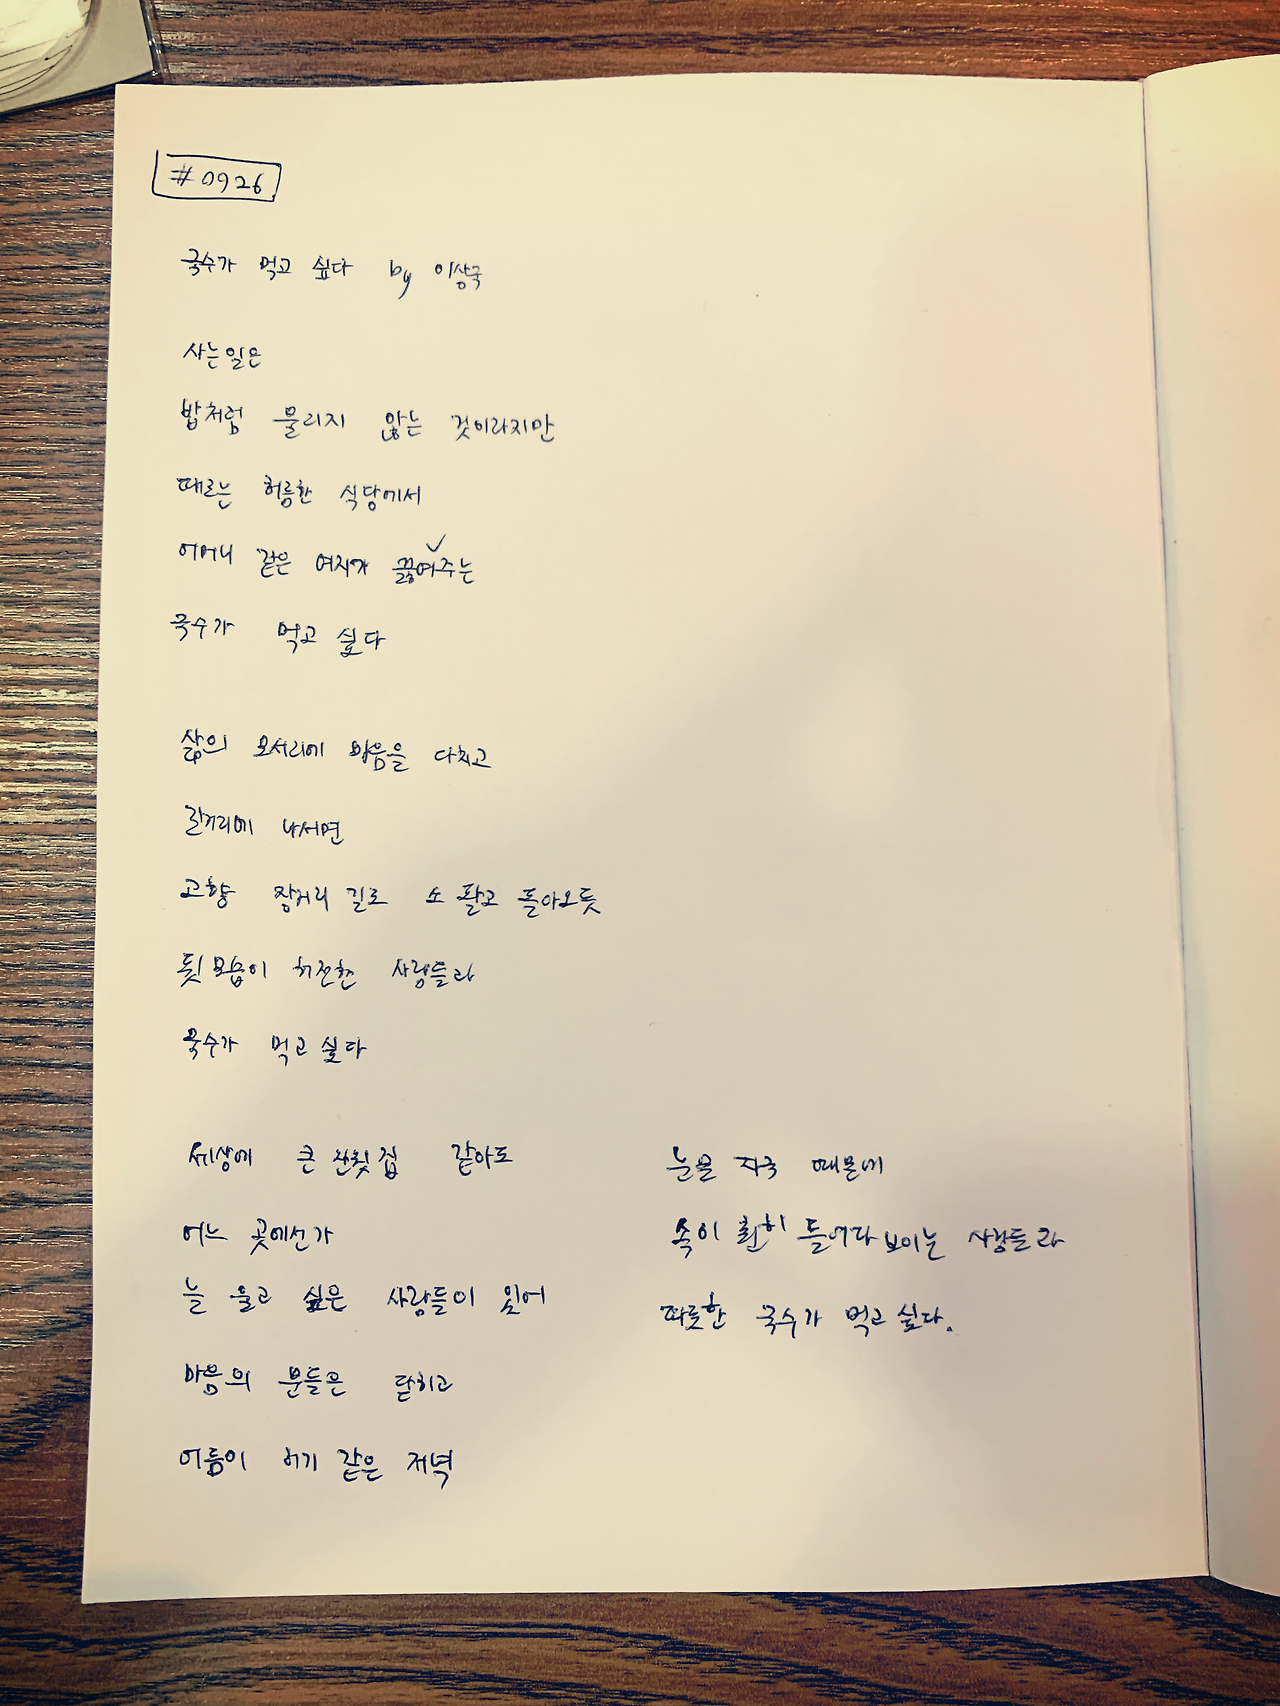 #0926
국수가 먹고 싶다 by 이상국
사는일은
밥처럼 물리지 않는 것이라지만
때로는 허름한 식당에서
어머니 같은 여자가 끓여✓주는
국수가 먹고 싶다
삶의 모서리에 마음을 다치고
길거리에 나서면
고향 장거리 길로 소 팔고 돌아오듯
뒷모습이 허전한 사람들과
국수가 먹고 싶다
세상에 큰 잔칫집 같아도
어느 곳에선가
늘 울고 싶은 사람들이 있어
마음의 문들은 닫히고
어둠이 허기 같은 저녁
눈물 자국 때문에
속이 훤히 들여다 보이는 사람들과
따뜻한 국수가 먹고 싶다.